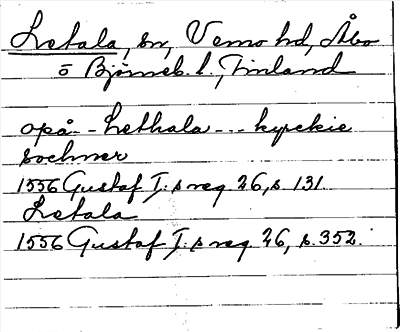 Letala, sn, Vemo hd, Åbo
o Björneb. l., Finland
opå -- Lethala --- kyrckie
sochner
1556 Gustaf I:s reg. 26, s. 131.
Letala
1556 Gustaf I:s reg. 26, s. 352.